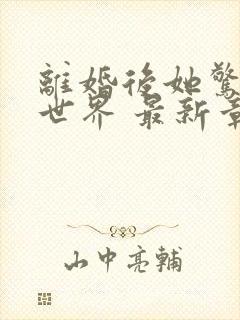 離婚後她驚
世界 最新章
山中亮輔